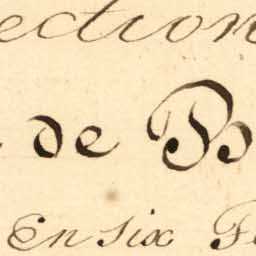 ection
de B
En six F